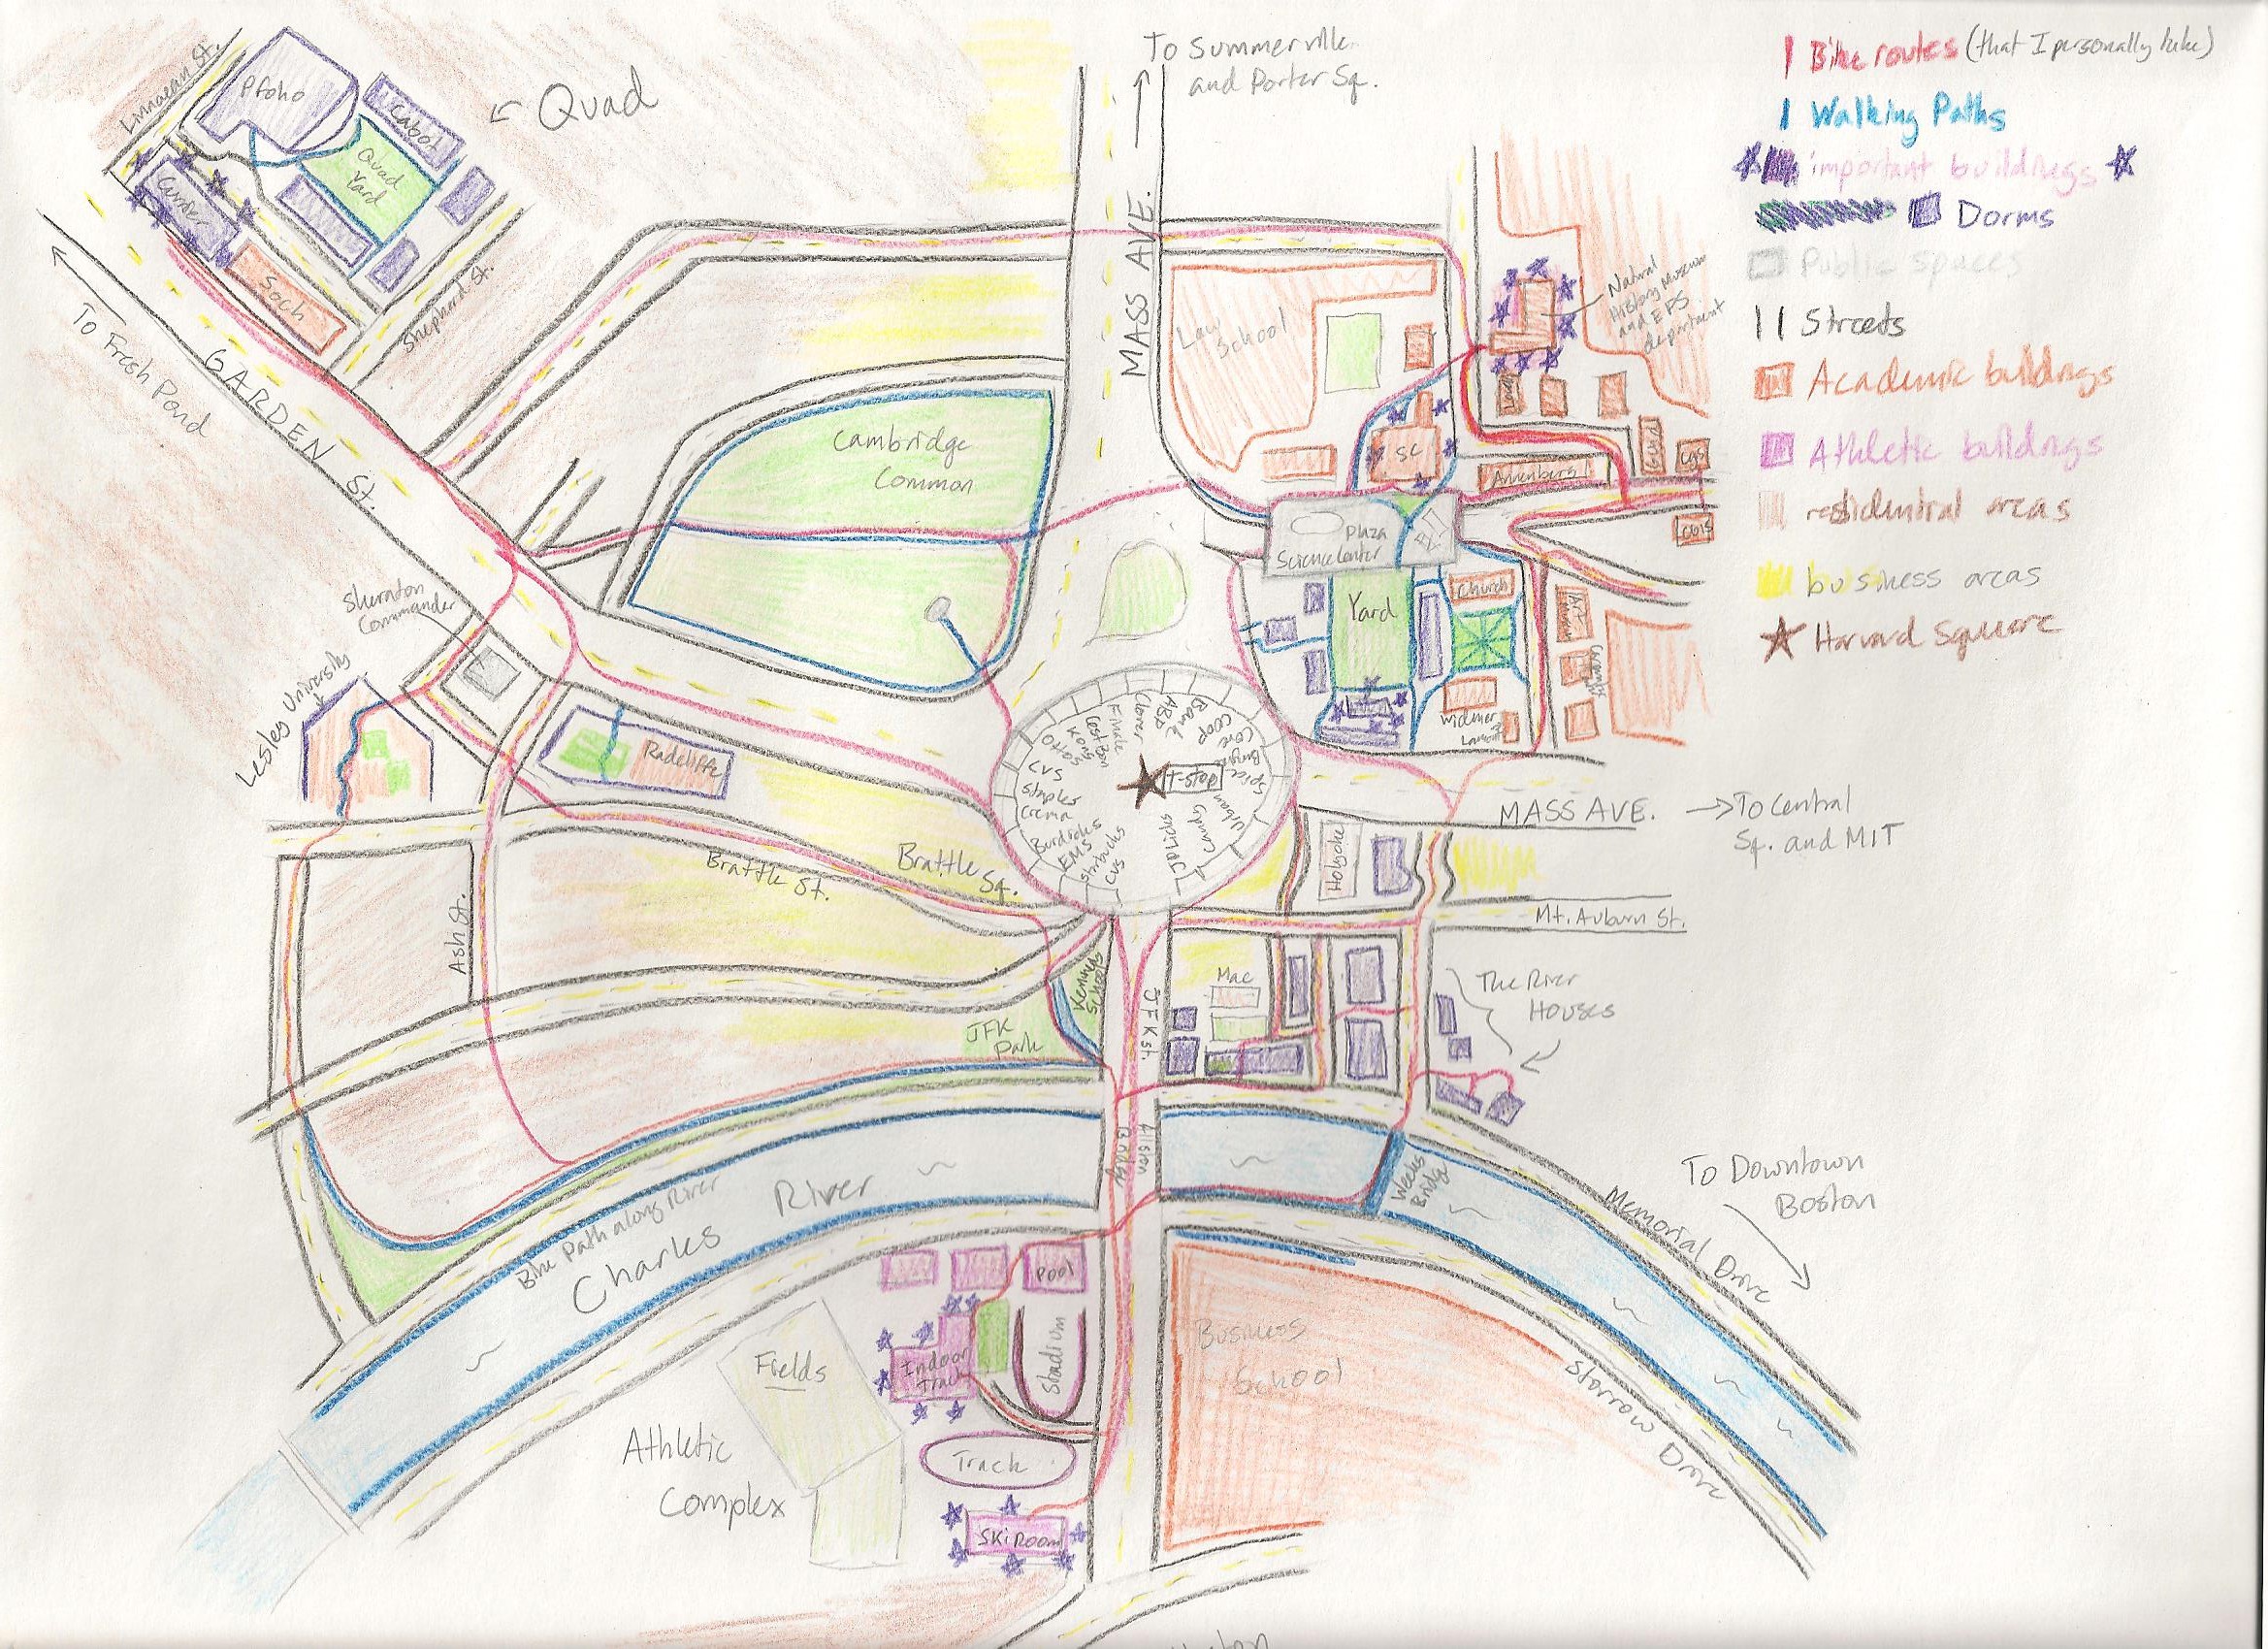 To Summerville
and Porter Sq.
Bike routes (that I personally take)
Walking Paths
important buildings
Dorms
Public spaces
Streets
Academic buildings
Athletic buildings
residential areas
business areas
Harvard Square
Linnaean St.
Pfoho
Cabot
Quad
Quad
Yard
Currier
Soch
Shephard St.
To Fresh Pond
GARDEN St.
MASS AVE.
Law
School
Natural
History Museum
and EPS
department
Cambridge
Common
SC
Annenberg
CGIS
CGIS
Plaza
Science Center
Yard
Church
Art
Widener
Lamont
Sheraton
Commander
Lesley University
Radcliffe
Clover
ABP
Bank
COOP
Core
Spice
Urban
JP Licks
CVS
Starbucks
EMS
Burdicks
Crema
Staples
CVS
Otto
Kong
T-Stop
Holyoke
MASS AVE.
To Central
Sq. and MIT
Brattle St.
Brattle Sq.
Ash St.
Mt. Auburn St.
Kennedy
School
JFK
Park
JFK St.
Mac
The River
Houses
Bike Path along River
Charles River
Allston
Bridge
Weeks
Bridge
Memorial Drive
To Downtown
Boston
Pool
Fields
Indoor
Track
Stadium
Business
School
Storrow Drive
Athletic
Complex
Track
Ski Room